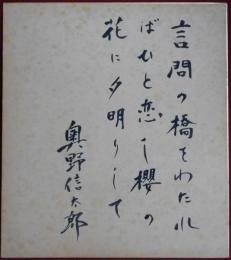 言問の橋をわたれ
ばひと恋し櫻の
花に夕明りして
奥野信太郎